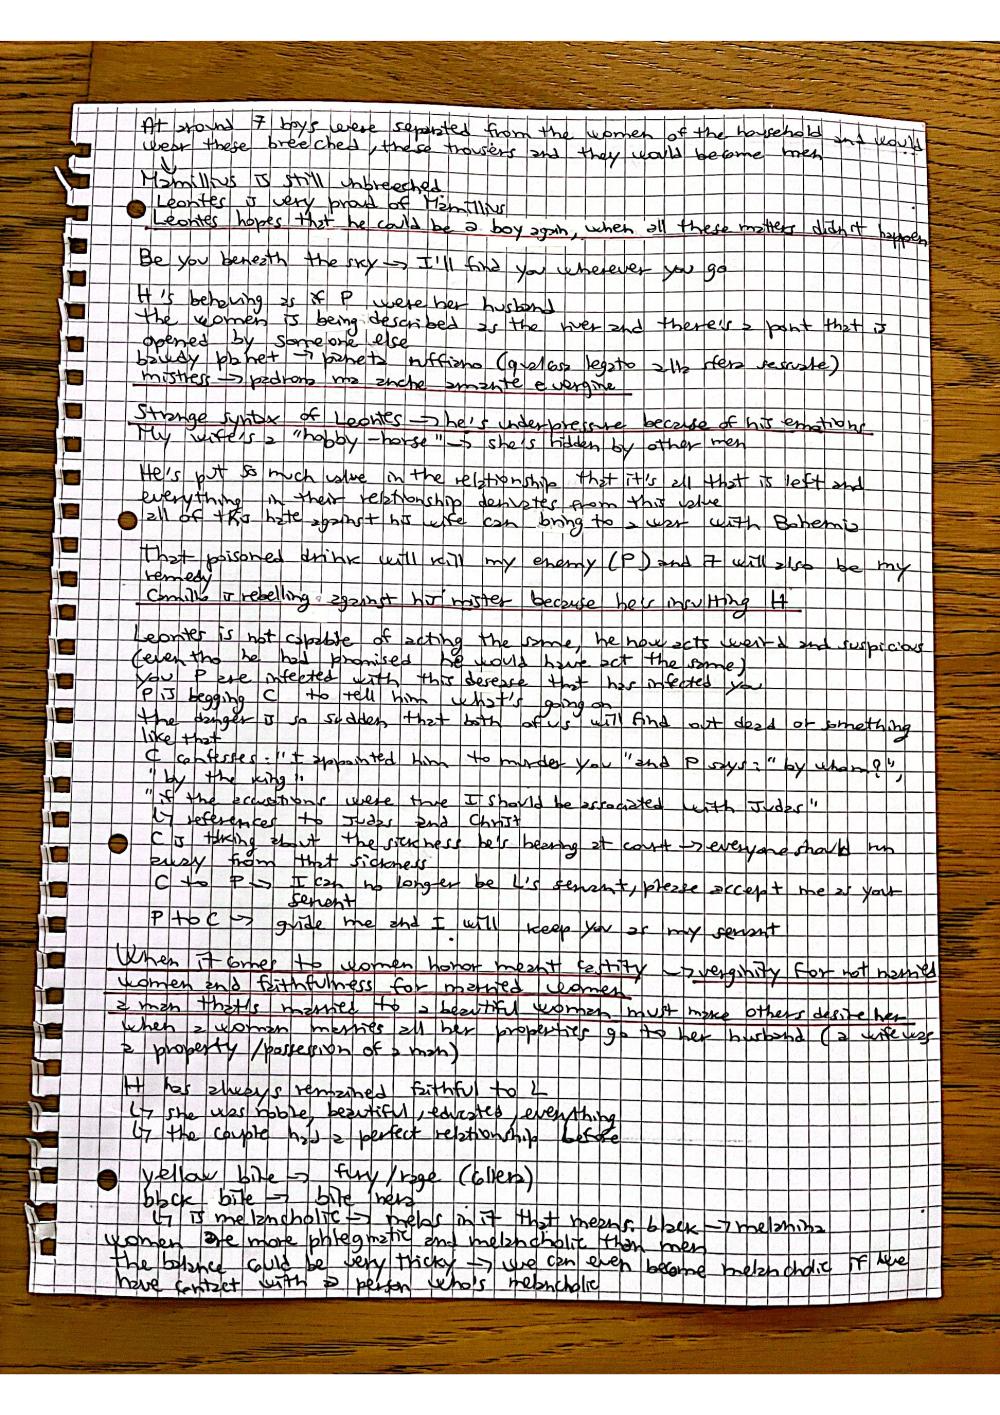 At around 7 boys were separated from the women of the household and would
wear these breeched, these trousers and they would become men
↓
Mamillius is still unbreeched
Leontes is very proud of Mamillius
Leontes hopes that he could be a boy again, when all these matters didn't happen
Be you beneath the sky → I'll find you wherever you go
H's behaving as if P were her husband
the women is being described as the river and there's a point that is
opened by someone else
bawdy planet → pianeta ruffiano (qualcosa legato alla sfera sessuale)
mistress → padrona ma anche amante e vergine
Strange syntax of Leontes → he's underpressure because of his emotions
My wife's a "hobby-horse" → she's ridden by other men
He's put so much value in the relationship that it's all that is left and
everything in their relationship derivates from this value
all of this hate against his wife can bring to a war with Bohemia
that poisoned drink will kill my enemy (P) and it will also be my
remedy
Camillo is rebelling against his mister because he's insulting H
Leontes is not capable of acting the same, he now acts weird and suspicious
(even tho he had promised he would have act the same)
you P are infected with this desease that has infected you
P is begging C to tell him what's going on
the danger is so sudden that both of us will find out dead or something
like that
C confesses: "I appointed him to murder you" and P says: "by whom?",
"by the king"
"if the accusations were true I should be associated with Judas"
↳ references to Judas and Christ
C is talking about the sickness he's bearing at court → everyone should run
away from that sickness
C to P → I can no longer be L's servant, please accept me as your
servent
P to C → guide me and I will keep you as my servant
When it comes to women honor meant castity → verginity for not married
women and faithfulness for married women
a man that's married to a beautiful woman must make others desire her
when a woman marries all her properties go to her husband (a wife was
a property / possession of a man)
H has always remained faithful to L
↳ she was noble, beautiful, educated, everything
↳ the couple had a perfect relationship before
yellow bile → fury/rage (collera)
black bile → bile nera
↳ is melancholic → melas in it that means black → melanina
women are more phlegmatic and melancholic than men
the balance could be very tricky → we can even become melancholic if we
have contact with a person who's melancholic